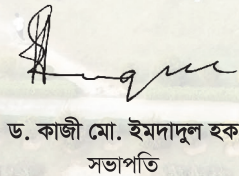 ড. কাজী মো. ইমদাদুল হক
সভাপতি